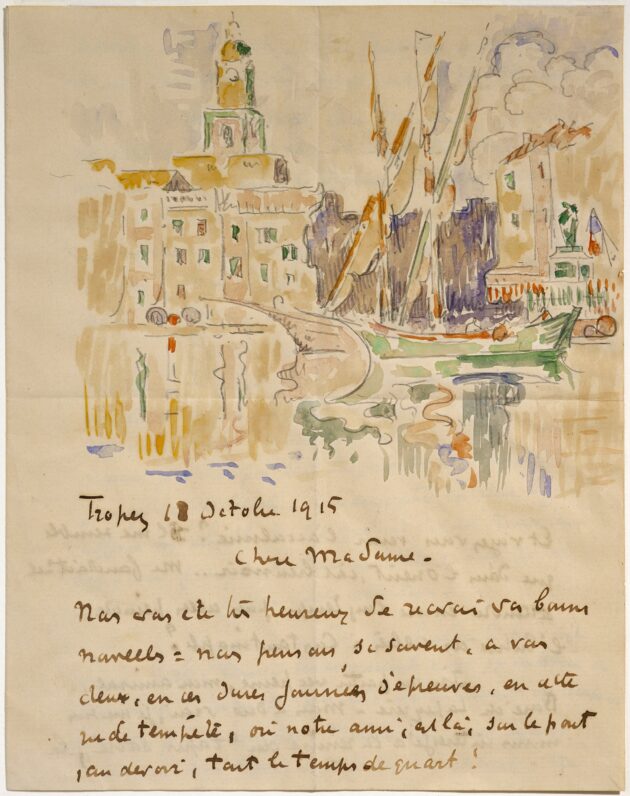 Tropez 18 Octobre 1915
Chere Madame -
Nous avons été très heureux de recevoir vos bonnes
nouvelles = nous pensons, si souvent, a vous
deux, en ces dures journées d'épreuves, en cette
tempête, où notre ami, est là, sur le pont
, au devoir, tout le temps de quart !